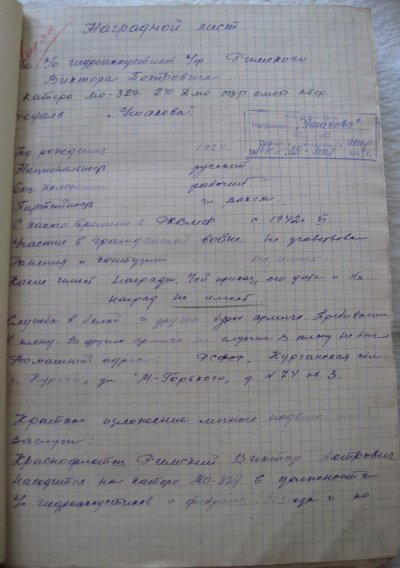 Наградной лист.
На У/о гидроакустиков г/ф Римского
Виктора Петровича
Катера МО-327 2го Дмо отр
медаль "Ушакова".
Награжден "Ушакова"
Приказ
Год рождения 1924
Национальность русский
Соц. положение рабочий
Партийность чл. ВЛКСМ.
С какого времени в РКВМФ с 1942 г. VI.
Участие в гражданской войне Не участвовал
Ранения и контузии Не имеет
Какие имеет награды. Чей приказ, его дата и №...
наград не имеет
Служба в белой и других бурж. армиях. Пребывание
в плену. В других армиях не служил. В плену не был
Домашний адрес: РСФСР, Курганская обл.
г. Курган, ул. М-Горького, д. № 74 кв. 3.
Краткое изложение личного подвига или
заслуги:
Краснофлотец Римский Виктор Петрович
находится на катере МО-327 в должности
У/о гидроакустиков с февраля 1943 года и по